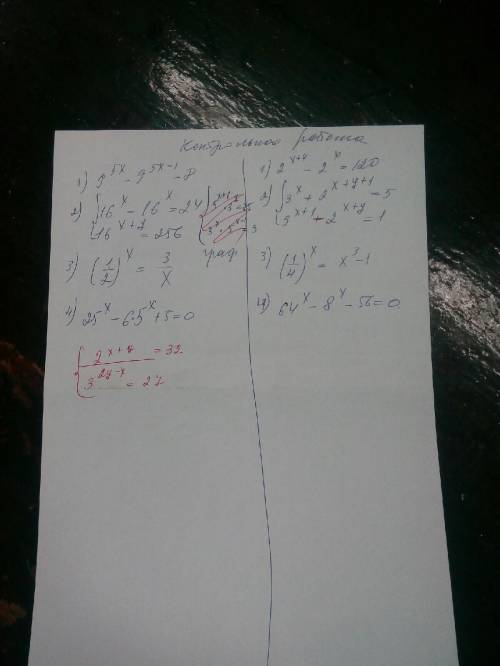 Контрольная работа
1) 9^{5x} - 9^{5x-1} = 8
2) { 16^x - 16^x = 24
16^{x+y} = 256
3) (1/2)^x = 3/x
граф
4) 25^x - 6·5^x + 5 = 0
{ 2^{x+y} = 32
3^{2y-x} = 27
1) 2^{x+4} - 2^x = 120
2) { 3^x + 2^{x+y+1} = 5
3^{x+1} - 2^{x+y} = 1
3) (1/4)^x = x^3 - 1
4) 64^x - 8^x - 56 = 0